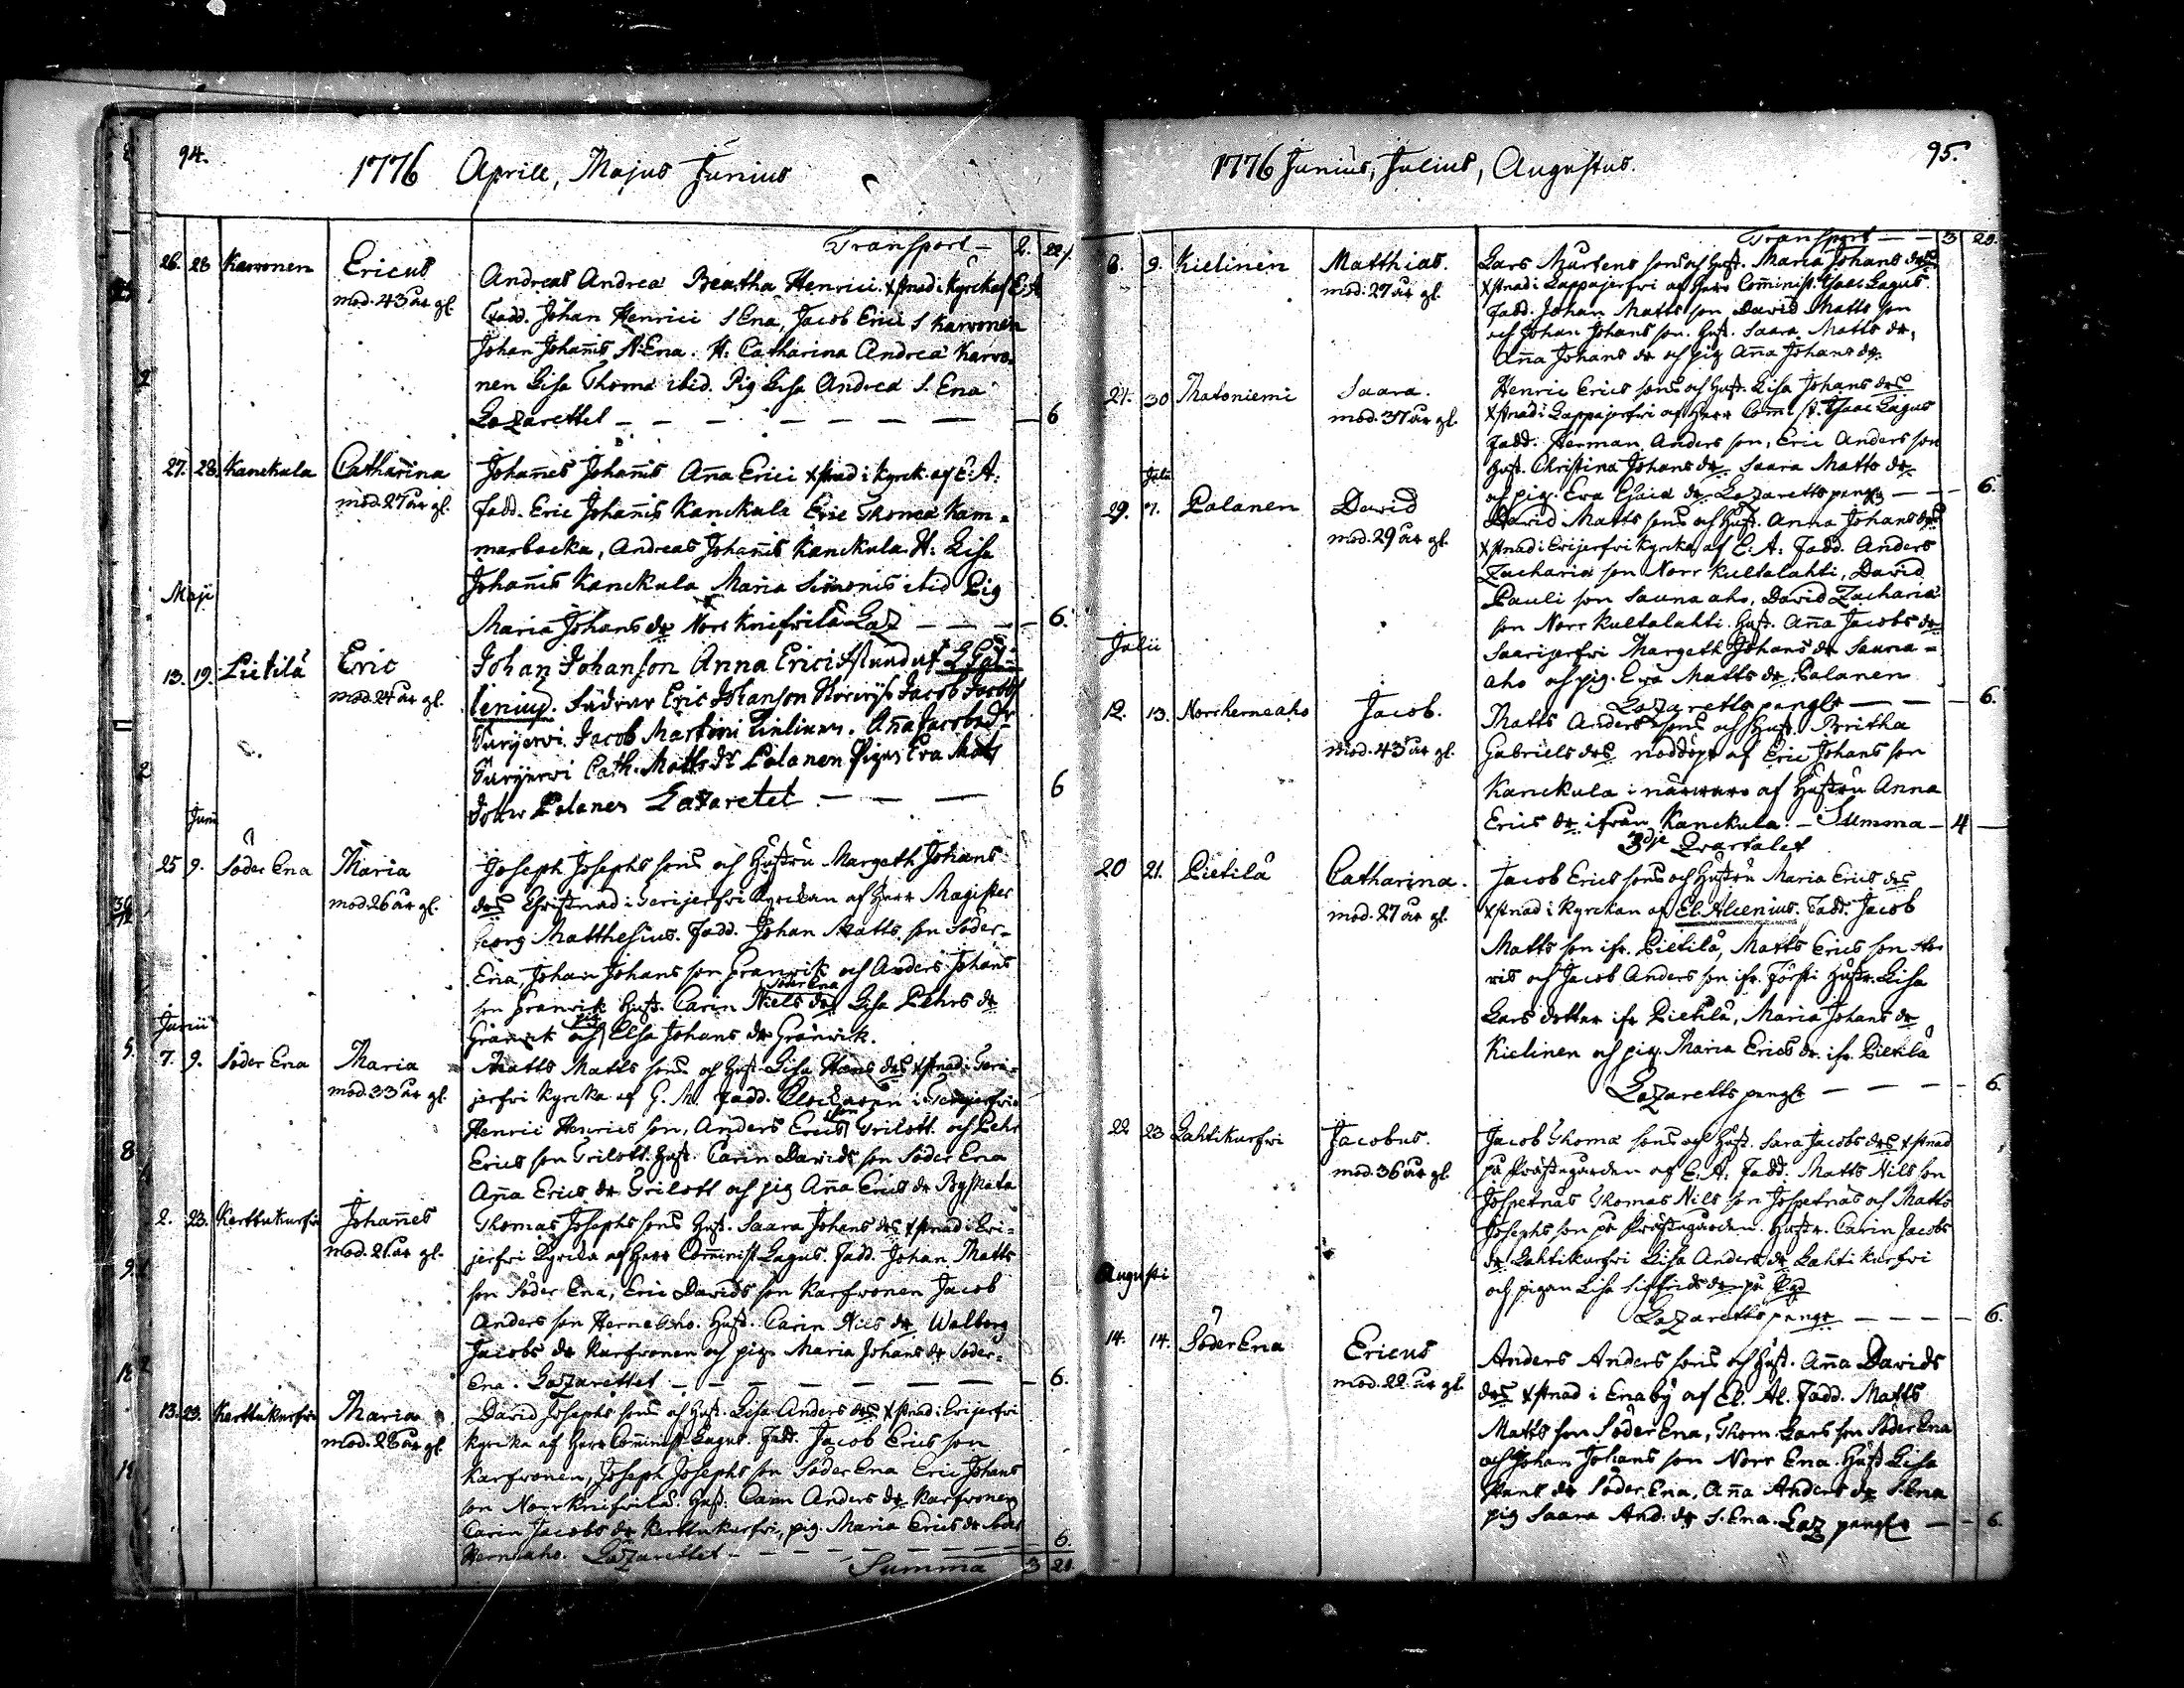 94.
1776 Aprill, Majus Junius
Transport – 2. 22/
26. 28 Karvonen Ericus Andreas Andreæ Beatha Henrici. Xstnad i Kyrckaf E: A
mod. 43 år gl. fadd. Johan Henrici S Ena, Jacob Erici S Karvonen
Johan Johañis N: Ena. H: Catharina Andreæ Karvo-
nen Lisa Thomæ ibid. Pig Lisa Andreæ S. Ena
Lazarettet – – – – – – – – 6
27. 28. Kanckula Catharina Johañes Johañis Aña Erici xstnad i Kyrck. af E: A:
mod. 27 år gl. Fadd. Eric Johañis Kanckula Eric Thomæ Kam-
marbacka, Andreas Johañis Kanckula H: Lisa
Johañis Kanckula Maria Simonis ibid Pig
Maji
Maria Johans dr Norr Knifvilä Laz – – – – 6.
13. 19. Pietilä Eric Johan Johanson Anna Erici
mod. 24 år gl. lenius. Fadrar Eric Johanson Jacob Jacobs
Turijervi. Jacob Martini Kielinen. Aña Jacobsdr
Turijervi Cath. Matts dr Palanen Pigan Eva Mats
Dotter Palanen Lazaretet – – – 6
Junii
25 9. Söder Ena Maria Joseph Josephs sons och Hustru Margeth Johans
mod 26 år gl. drs Christnad i Gerijerfvi Kyrckan af Herr Magister
Georg Matthesius. Fadd. Johan Matts son Söder-
Ena Johan Johans son Granvik och Anders Johans
Söder Ena
son Granvik Hust. Carin Niels dr Lisa Pehrs dr
pig
Junii
Granvik och Elsa Johans dr Granvik.
7. 9. Söder Ena Maria Matts Matts sons och Hust. Lisa Hans drs xstnad i Geri-
mod. 33 år gl. jerfvi Kyrcka af G. M. Fadd. Klockaren i Gerijerfvi
son
Henric Henrics son, Anders Erics Grilott. och Pehr
Erics son Grilott. Hust. Carin Davids son Söder Ena
Aña Erics dr Grilott och pig Aña Erics dr Byskata
2. 23. Kerttukurfvi Johañes Thomas Josephs sons Hust. Saara Johans drs xstnad i Evi-
mod. 21 år gl. jerfvi Kyrcka af Herr Comminist Lagus. Fadd. Johan Matts
son Söder Ena, Eric Davids son Karfvonen Jacob
Anders son Herneaho. Hust. Carin Nils dr Walborg
Jacobs dr Karfvonen och pig. Maria Johans dr Söder-
Ena. Lazarettet – – – – – – – 6.
13. 23. Kerttukurfvi Maria David Josephs sons och Hust. Lisa Anders drs xstnad i Evijerfvi
mod. 28 år gl. Kyrcka af Herr Comminist Lagus. Fadd. Jacob Erics son
Karfvonen, Joseph Josephs son Söder Ena Eric Johans
son Norrknifvilä. Hust. Carin Anders dr Karfvonen
Carin Jacobs dr Kerttukurfvi, pig. Maria Erics dr Söder
Herneaho. Lazarettet – – – – – – – 6.
Summa 3 20.
95.
1776 Junius, Julius, Augustus.
Transport – – 3 20.
6. 9. Kielinen Matthias. Lars Murtens sons och Hust. Maria Johans drs
mod. 27 år gl. xstnad i Lappajerfvi af Herr Comminist. Isaac Lagus
Fadd. Johan Matts son David Matts son
och Johan Johans son. Hust. Saara Matts dr,
Aña Johans dr och pig Aña Johans dr.
21. 30 Matoniemi Saara. Henric Erics sons och Hust. Lisa Johans drs
mod. 37 år gl. xstnad i Lappajerfvi af Herr Com. st. Isaac Lagus
Fadd. Herman Anders son, Eric Anders son
Hust. Christina Johans dr Saara Matts dr
Julii
och pig. Eva Esaiæ dr Lazaretts pengr – – 6.
29. 7. Palanen David David Matts sons och Hust. Anna Johans drs
mod. 29 år gl. xstnad i Evijerfvi Kyrcka af E: A: Fadd. Anders
Zachariæ son Norr Kultalahti, David
Pauli son Sauna aho, David Zachariæ
son Norr Kultalahti. Hust. Aña Jacobs dr
Julii
Saarijerfvi Margeth Johans dr Sauna-
aho och pig. Eva Matts dr Palanen
Lazaretts pengr – – 6.
12. 13. Norrherneaho Jacob. Matts Anders sons och Hust. Britha
mod. 43 år gl. Gabriels drs nöddöpt af Eric Johans son
Kanckula i närvaro af Hustru Anna
Erics dr ifrån Kanckula. – Summa – 4 –
3dje Qvartalet
20 21. Pietilä Catharina. Jacob Erics sons och Hustru Maria Erics drs
mod. 27 år gl. xstnad i Kyrckan af El. Alcenius. Fadd. Jacob
Matts son ifr. Pietilä, Matts Erics son
och Jacob Anders son ifr. Förtti Hustr. Lisa
Lars dotter ifr Pietilä, Maria Johans dr
Kielinen och pig. Maria Erics dr. ifr. Pietilä
Lazaretts pengr – – – 6.
22 23 Lahtikurfvi Jacobus. Jacob Thomæ sons och Hust. Sara Jacobs drs xstnad
mod. 36 år gl på Prästegården af E. A. Fadd. Matts Nils son
Jospetnäs Thomas Nils son Jospetnäs och Matts
Josephs son på Prästegården. Hustr. Carin Jacobs
dr Lahtikurfvi Lisa Anders dr Lahti kurfvi
Augusti
och pigan Lisa Sigfrids dr på Pgd
Lazaretts pengr – – – – 6.
14. 14. Söder Ena Ericus Anders Anders sons och Hust. Aña Davids
mod. 22 år gl. drs xstnad i Enaby af El. Al. Fadd. Matts
Matts son Söder Ena, Thom. Lars son Söder Ena
och Johan Johans son Norr Ena. Hust Lisa
dr Söder Ena, Aña Anders dr S. Ena
pig Saara And: dr S. Ena. Laz pengr – – 6.